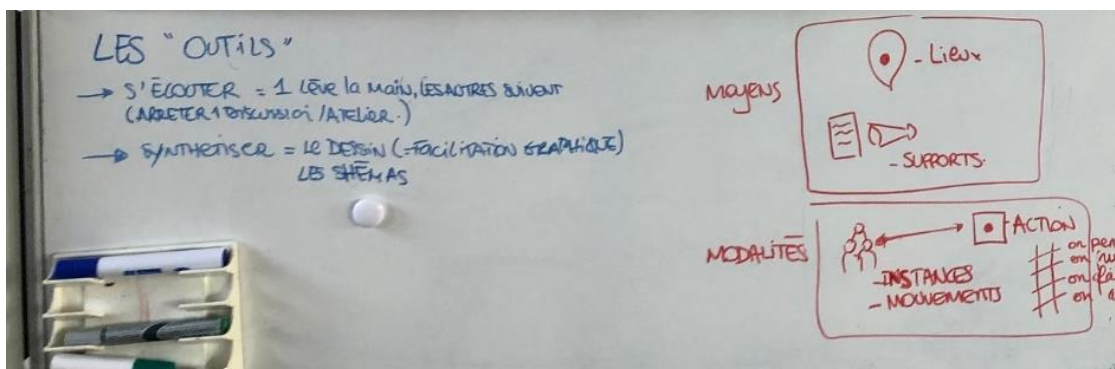 LES "OUTiLS"
→ S'ÉCOUTER = 1 Lève la Main, LES AUTRES SUIVENT
(ARRETER 1 DISCUSSION / ATELIER.)
→ SYNTHETISER = LE DESSIN (=FACILITATION GRAPHIQUE)
LES SHÉMAS
MOYENS
- Lieux
- SUPPORTS.
MODALITÉS
ACTION
- INSTANCES
- MOUVEMENTS
on
on
on
on